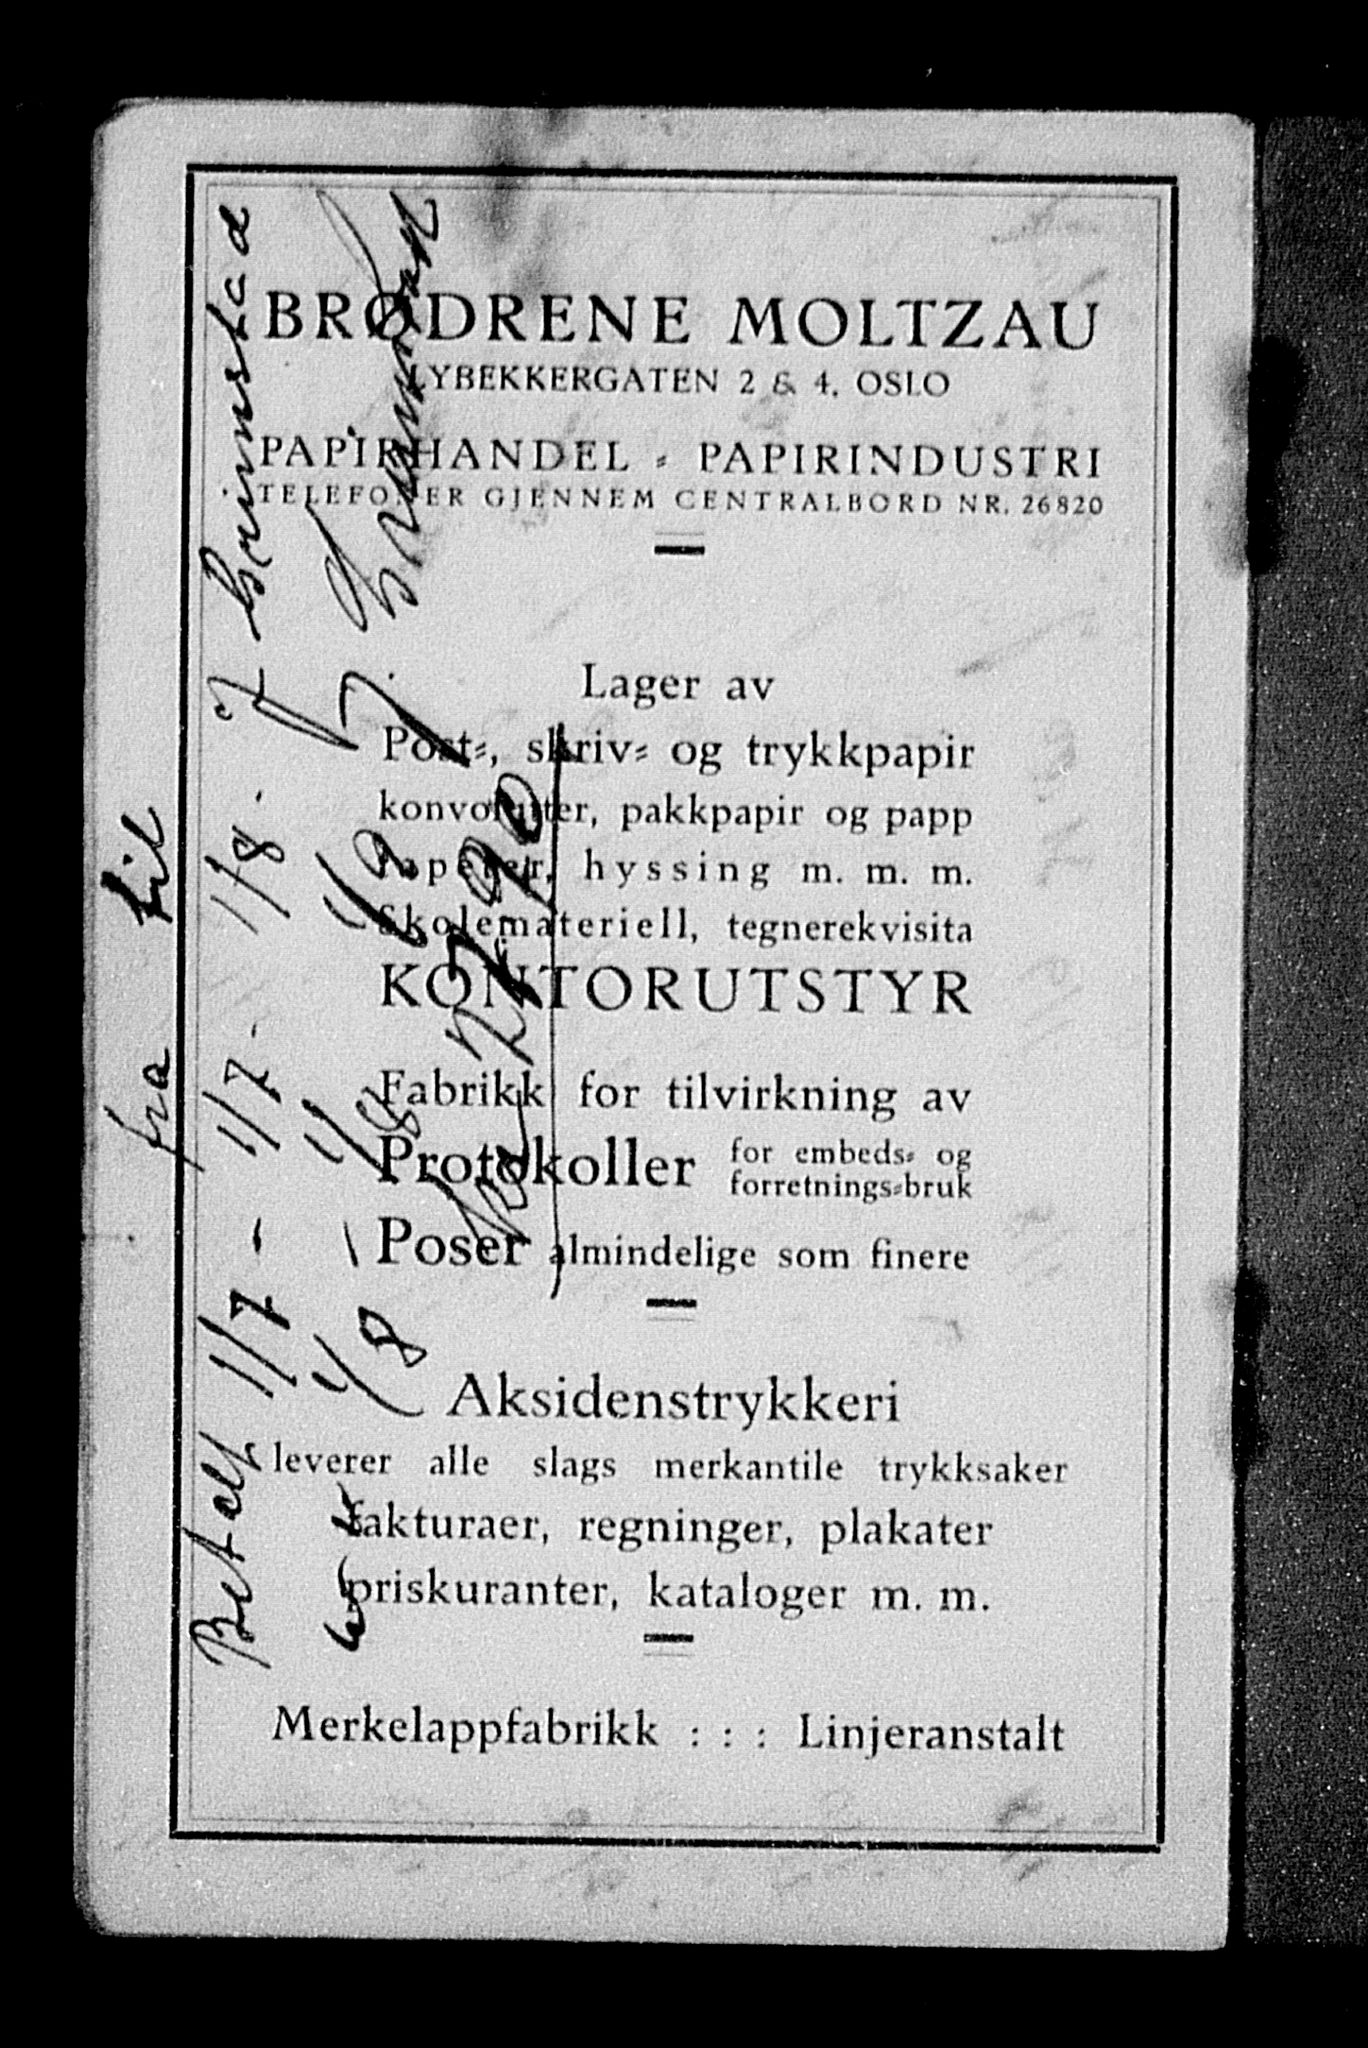 BRØDRENE MOLTZAU
LYBEKKERGATEN 2 & 4, OSLO
PAPIRHANDEL - PAPIRINDUSTRI
TELEFONER GJENNEM CENTRALBORD NR. 26820
Lager av
Post-, skriv- og trykkpapir
konvolutter, pakkpapir og papp
Tapeter, hyssing m. m. m.
Skolemateriell, tegnerekvisita
KONTORUTSTYR
Fabrikk for tilvirkning av
Protokoller for embeds- og
forretnings-bruk
Poser almindelige som finere
Aksidenstrykkeri
leverer alle slags merkantile trykksaker
fakturaer, regninger, plakater
priskuranter, kataloger m. m.
Merkelappfabrikk : : : Linjeranstalt
fra til
Betalt 1/7 - 1/7 - 1/8 - J Grimstad
1/8 - 1/8 1/9